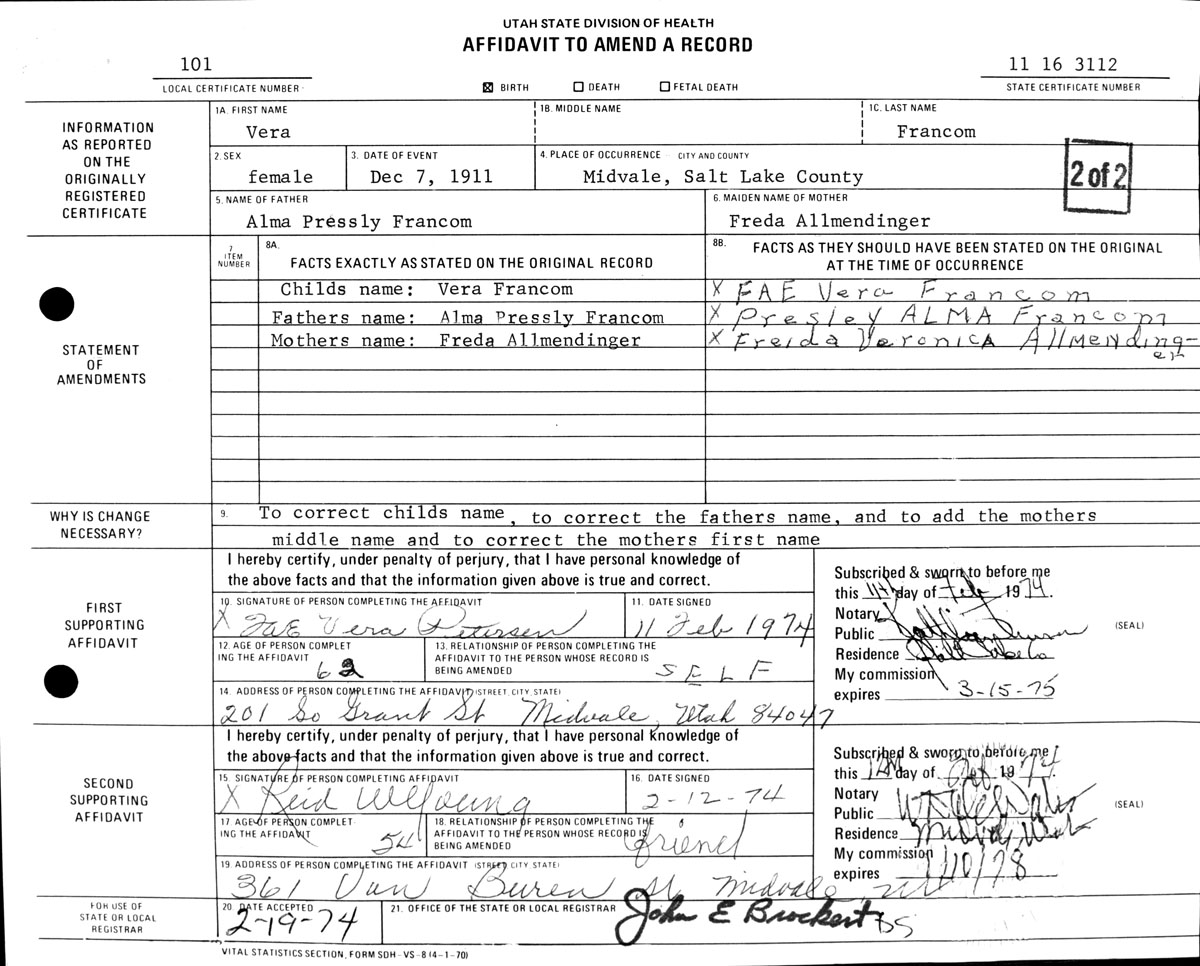 UTAH STATE DIVISION OF HEALTH
AFFIDAVIT TO AMEND A RECORD
101
LOCAL CERTIFICATE NUMBER
☒ BIRTH ☐ DEATH ☐ FETAL DEATH
11 16 3112
STATE CERTIFICATE NUMBER
INFORMATION
AS REPORTED
ON THE
ORIGINALLY
REGISTERED
CERTIFICATE
1A. FIRST NAME 1B. MIDDLE NAME 1C. LAST NAME
Vera Francom
2. SEX 3. DATE OF EVENT 4. PLACE OF OCCURRENCE - CITY AND COUNTY
female Dec 7, 1911 Midvale, Salt Lake County
2 of 2
5. NAME OF FATHER 6. MAIDEN NAME OF MOTHER
Alma Pressly Francom Freda Allmendinger
STATEMENT
OF
AMENDMENTS
7
ITEM
NUMBER
8A.
FACTS EXACTLY AS STATED ON THE ORIGINAL RECORD
8B. FACTS AS THEY SHOULD HAVE BEEN STATED ON THE ORIGINAL
AT THE TIME OF OCCURRENCE
Childs name: Vera Francom X FAE Vera Francom
Fathers name: Alma Pressly Francom X Presley ALMA Francom
Mothers name: Freda Allmendinger X Freida Veronica Allmending-
er
WHY IS CHANGE
NECESSARY?
9. To correct childs name, to correct the fathers name, and to add the mothers
middle name and to correct the mothers first name
FIRST
SUPPORTING
AFFIDAVIT
I hereby certify, under penalty of perjury, that I have personal knowledge of
the above facts and that the information given above is true and correct.
10. SIGNATURE OF PERSON COMPLETING THE AFFIDAVIT 11. DATE SIGNED
X FaE Vera Petersen 11 Feb 1974
12. AGE OF PERSON COMPLET
ING THE AFFIDAVIT
62
13. RELATIONSHIP OF PERSON COMPLETING THE
AFFIDAVIT TO THE PERSON WHOSE RECORD IS
BEING AMENDED
SELF
14. ADDRESS OF PERSON COMPLETING THE AFFIDAVIT (STREET, CITY, STATE)
201 So Grant St Midvale, Utah 84047
Subscribed & sworn to before me
this 11th day of Feb 1974.
Notary
Public
Residence
My commission
expires 3-15-75
(SEAL)
SECOND
SUPPORTING
AFFIDAVIT
I hereby certify, under penalty of perjury, that I have personal knowledge of
the above facts and that the information given above is true and correct.
15. SIGNATURE OF PERSON COMPLETING AFFIDAVIT 16. DATE SIGNED
X Reid 2-12-74
17. AGE OF PERSON COMPLET
ING THE AFFIDAVIT
54
18. RELATIONSHIP OF PERSON COMPLETING THE
AFFIDAVIT TO THE PERSON WHOSE RECORD IS
BEING AMENDED
friend
19. ADDRESS OF PERSON COMPLETING THE AFFIDAVIT (STREET, CITY, STATE)
361 Van Buren St. Midvale, Ut
Subscribed & sworn to before me
this day of Feb 1974.
Notary
Public
Residence Midvale, Utah
My commission
expires 1/10/78
(SEAL)
FOR USE OF
STATE OR LOCAL
REGISTRAR
20. DATE ACCEPTED
2-19-74
21. OFFICE OF THE STATE OR LOCAL REGISTRAR
John E Brockert DS
VITAL STATISTICS SECTION, FORM SDH-VS-8 (4-1-70)